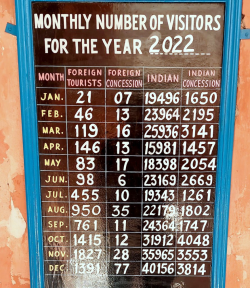 MONTHLY NUMBER OF VISITORS
FOR THE YEAR 2022
MONTH FOREIGN TOURISTS FOREIGN CONCESSION INDIAN INDIAN CONCESSION
JAN. 21 07 19496 1650
FEB. 46 13 23964 2195
MAR. 119 16 25936 3141
APR. 146 13 15981 1457
MAY 83 17 18398 2054
JUN. 98 6 23169 2669
JUL. 455 10 19343 1261
AUG. 950 35 22179 1802
SEP. 761 11 24364 1747
OCT. 1415 12 31912 4048
NOV. 1827 28 35965 3553
DEC. 1391 77 40156 3814